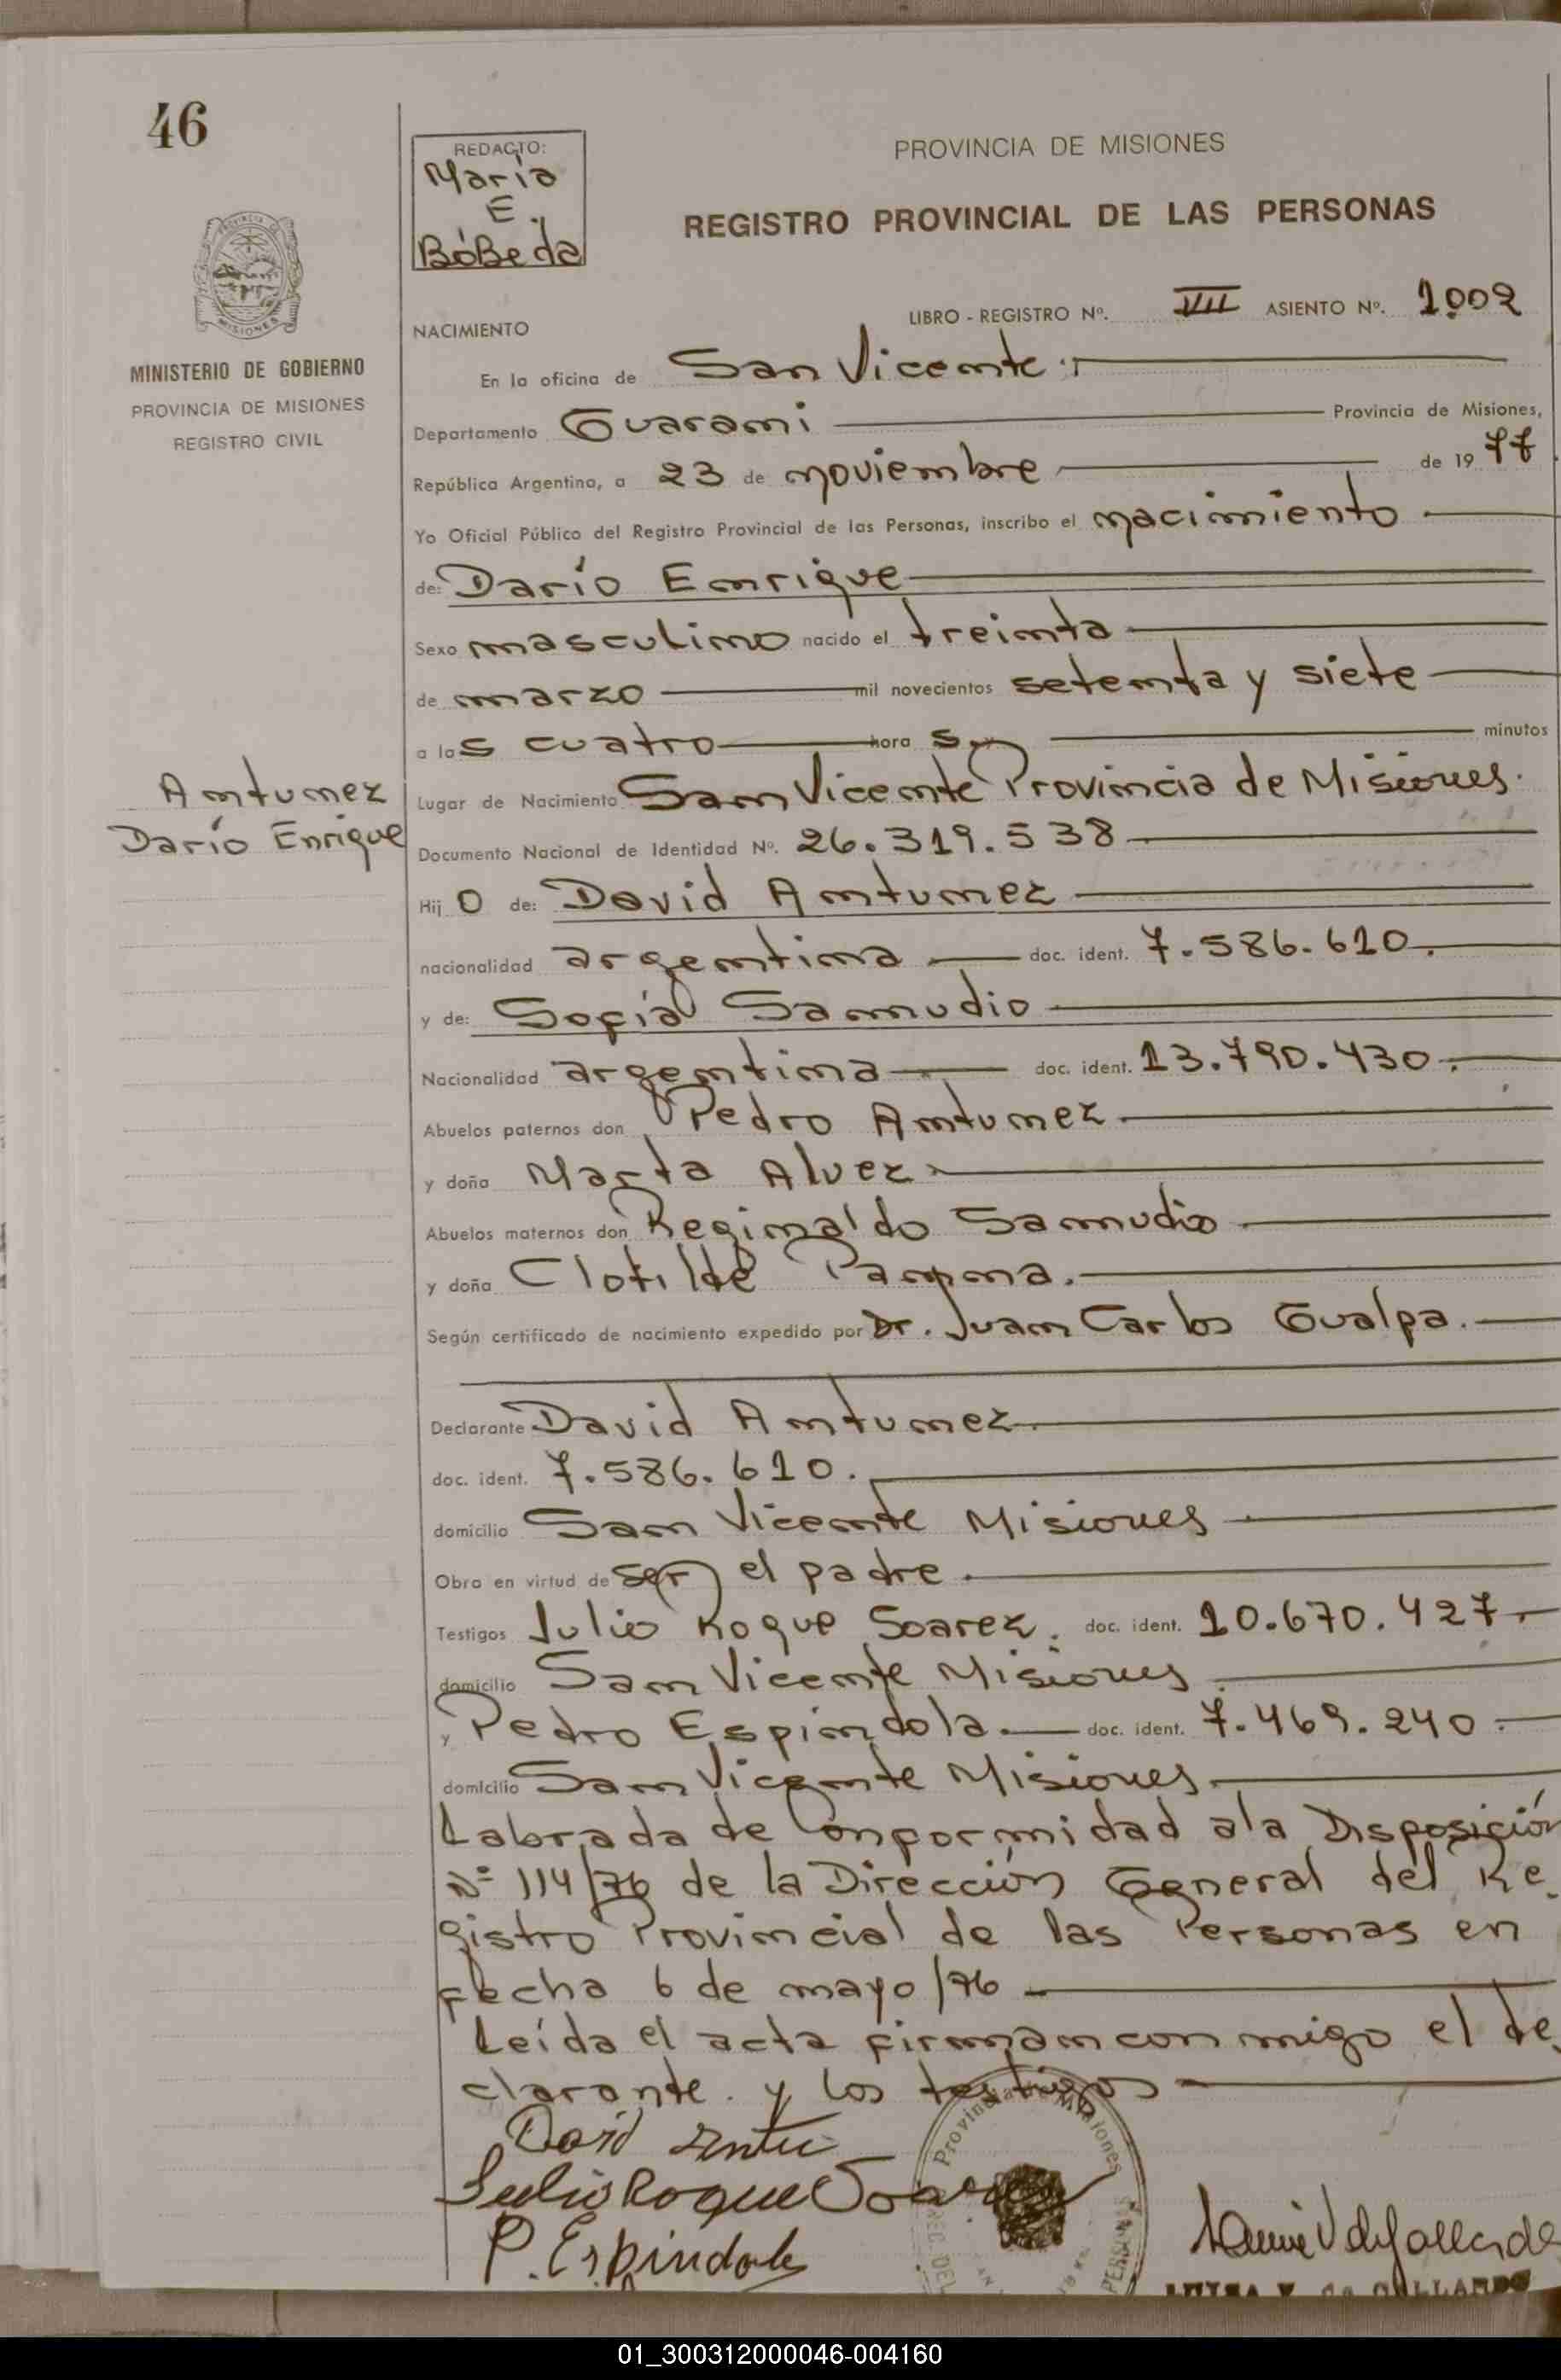 46
REDACTO:
María
E.
BóBeda
PROVINCIA DE MISIONES
REGISTRO PROVINCIAL DE LAS PERSONAS
MISIONES
MINISTERIO DE GOBIERNO
PROVINCIA DE MISIONES
REGISTRO CIVIL
LIBRO - REGISTRO Nº. VII ASIENTO Nº. 1.002
NACIMIENTO
En la oficina de San Vicente
Departamento Guaraní Provincia de Misiones,
República Argentina, a 23 de noviembre de 1977
Yo Oficial Público del Registro Provincial de las Personas, inscribo el nacimiento
de: Darío Enrique
Sexo masculino nacido el treinta
de marzo mil novecientos setenta y siete
a las cuatro hora s. minutos
Antunez
Darío Enrique
Lugar de Nacimiento San Vicente Provincia de Misiones.
Documento Nacional de Identidad Nº. 26.319.538
Hijo de: David Antunez
nacionalidad argentina doc. ident. 7.586.610.
y de: Sofía Samudio
Nacionalidad argentina doc. ident. 13.790.430.
Abuelos paternos don Pedro Antunez
y doña Marta Alvez.
Abuelos maternos don Reginaldo Samudio
y doña Clotilde
Según certificado de nacimiento expedido por Dr. Juan Carlos Gualpa.
Declarante David Antunez
doc. ident. 7.586.610.
domicilio San Vicente Misiones
Obra en virtud de ser el padre.
Testigos Julio Roque Soarez. doc. ident. 10.670.427.
domicilio San Vicente Misiones
y Pedro Espindola. doc. ident. 7.469.240.
domicilio San Vicente Misiones
Labrada de Conformidad a la Disposición
Nº 114/76 de la Dirección General del Re
gistro Provincial de las Personas en
fecha 6 de mayo/76
Leída el acta firman con migo el de
clarante. y los testigos
David Antu
Julio Roque Soarez
P. Espindola
Provincia de Misiones
LUISA V. de GALLARDO
01_300312000046-004160